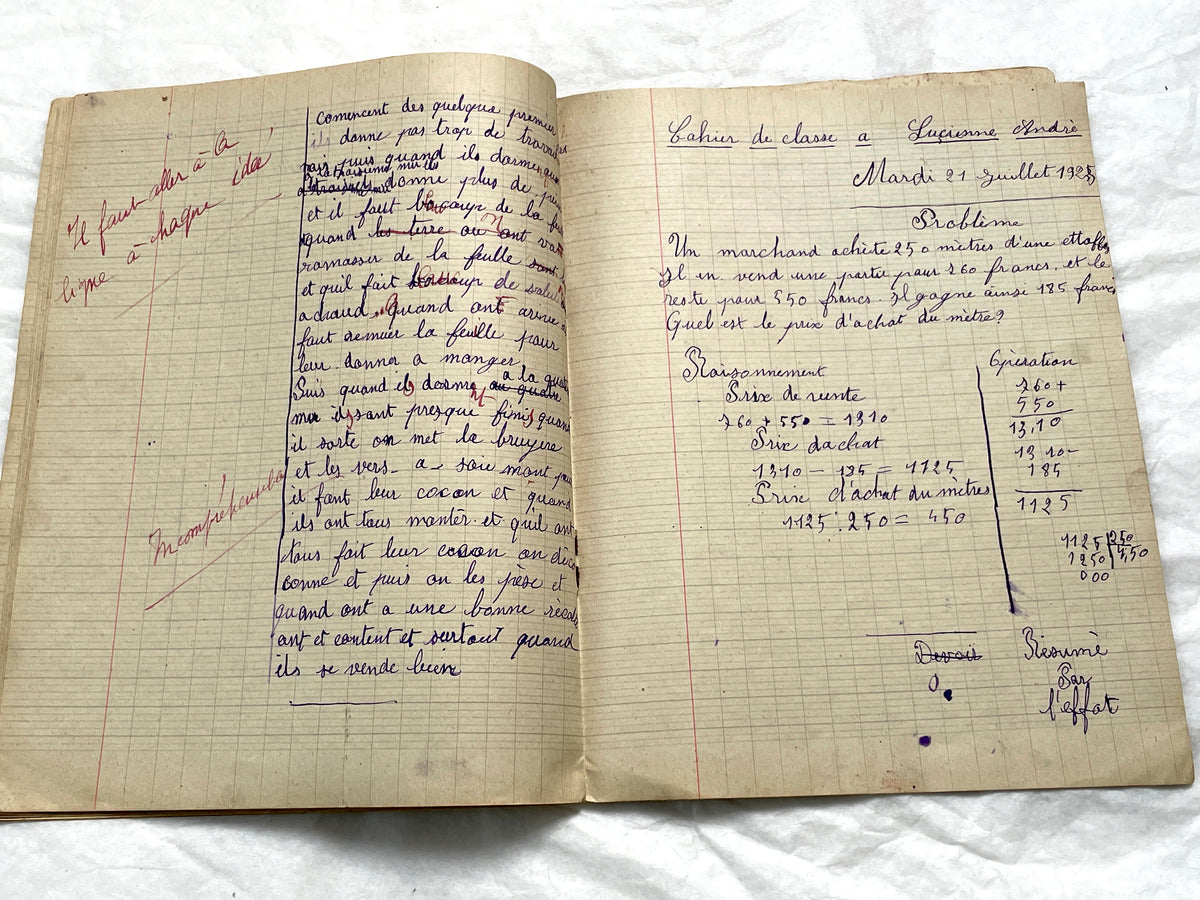 Il faut aller à la
ligne à chaque idée
Incompréhensible
comencent des quelque premier
ils donne pas trop de travail
mais puis quand ils dorment
donne plus de
et il faut baucoup de la
quand les terre ou ont va
ramasser de la feulle sont
et quil fait baucoup de
achaud. Quand ont arrive
faut remuer la feulle pour
leur donner a manger
Puis quand ils dorme au quatre
a la quatr
mue ils sant presque finis quand
il sorte on met la bruyere
et les vers-a-soie mont pour
il fant leur cocon et quand
ils ont tous mantér et qu'il ont
tous fait leur cocon on déco
conne et puis on les pèse et
quand ont a une bonne récol
ont et content et surtout quand
ils se vende bien
Cahier de classe a Lucienne Andrè
Mardi 21 Juillet 1925
Problème
Un marchand achète 250 mètres d'une ettoffe
Il en vend une partie pour 760 francs, et le
reste pour 550 francs. Il gagne ainsi 185 francs
Quel est le prix d'achat du mètre?
Raisonnement
Prix de vente
760 + 550 = 1310
Prix dachat
1310 - 185 = 1125
Prix d'achat du mètres
1125 : 250 = 450
Opération
760+
550
13,10
1310-
185
1125
1125 250
1250 4,50
000
Devoir
Résumé
Par
l'effat